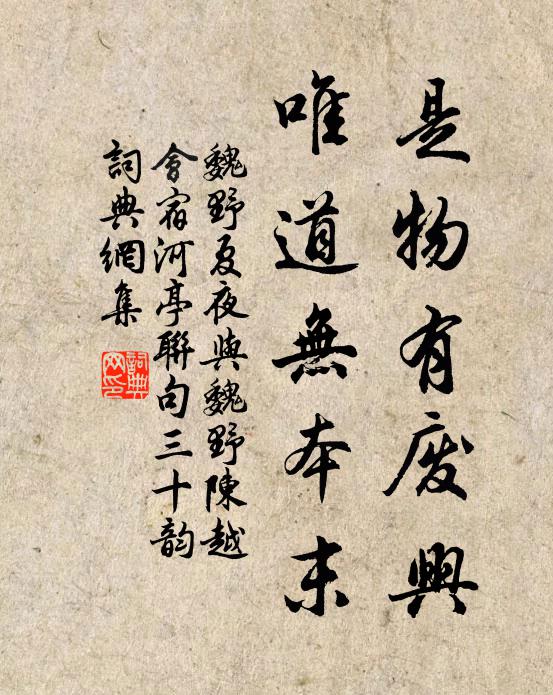 是物有废興
唯道無本末
魏野夏夜與魏野陳越
會宿河亭聯句三十韵
詞典網集
詞典网印